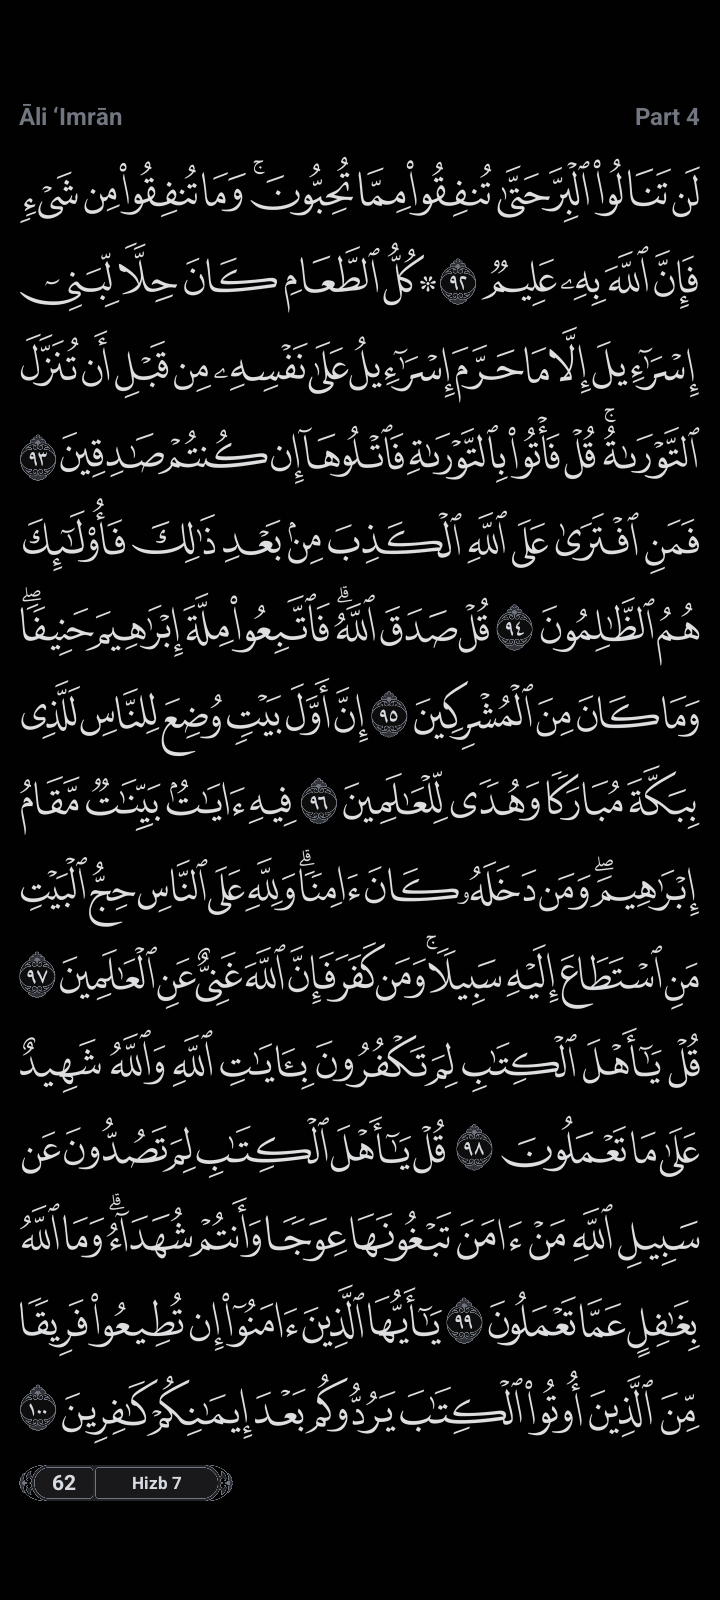 Āli ‘Imrān Part 4
لَن تَنَالُوا۟ ٱلْبِرَّ حَتَّىٰ تُنفِقُوا۟ مِمَّا تُحِبُّونَ ۚ وَمَا تُنفِقُوا۟ مِن شَىْءٍ
فَإِنَّ ٱللَّهَ بِهِۦ عَلِيمٌ ٩٢ ۞ كُلُّ ٱلطَّعَامِ كَانَ حِلًّا لِّبَنِىٓ
إِسْرَٰٓءِيلَ إِلَّا مَا حَرَّمَ إِسْرَٰٓءِيلُ عَلَىٰ نَفْسِهِۦ مِن قَبْلِ أَن تُنَزَّلَ
ٱلتَّوْرَىٰةُ ۗ قُلْ فَأْتُوا۟ بِٱلتَّوْرَىٰةِ فَٱتْلُوهَآ إِن كُنتُمْ صَٰدِقِينَ ٩٣
فَمَنِ ٱفْتَرَىٰ عَلَى ٱللَّهِ ٱلْكَذِبَ مِنۢ بَعْدِ ذَٰلِكَ فَأُو۟لَٰٓئِكَ
هُمُ ٱلظَّٰلِمُونَ ٩٤ قُلْ صَدَقَ ٱللَّهُ ۗ فَٱتَّبِعُوا۟ مِلَّةَ إِبْرَٰهِيمَ حَنِيفًا ۖ
وَمَا كَانَ مِنَ ٱلْمُشْرِكِينَ ٩٥ إِنَّ أَوَّلَ بَيْتٍ وُضِعَ لِلنَّاسِ لَلَّذِى
بِبَكَّةَ مُبَارَكًا وَهُدًى لِّلْعَٰلَمِينَ ٩٦ فِيهِ ءَايَٰتٌۢ بَيِّنَٰتٌ مَّقَامُ
إِبْرَٰهِيمَ ۖ وَمَن دَخَلَهُۥ كَانَ ءَامِنًا ۗ وَلِلَّهِ عَلَى ٱلنَّاسِ حِجُّ ٱلْبَيْتِ
مَنِ ٱسْتَطَاعَ إِلَيْهِ سَبِيلًا ۚ وَمَن كَفَرَ فَإِنَّ ٱللَّهَ غَنِىٌّ عَنِ ٱلْعَٰلَمِينَ ٩٧
قُلْ يَٰٓأَهْلَ ٱلْكِتَٰبِ لِمَ تَكْفُرُونَ بِـَٔايَٰتِ ٱللَّهِ وَٱللَّهُ شَهِيدٌ
عَلَىٰ مَا تَعْمَلُونَ ٩٨ قُلْ يَٰٓأَهْلَ ٱلْكِتَٰبِ لِمَ تَصُدُّونَ عَن
سَبِيلِ ٱللَّهِ مَنْ ءَامَنَ تَبْغُونَهَا عِوَجًا وَأَنتُمْ شُهَدَآءُ ۗ وَمَا ٱللَّهُ
بِغَٰفِلٍ عَمَّا تَعْمَلُونَ ٩٩ يَٰٓأَيُّهَا ٱلَّذِينَ ءَامَنُوٓا۟ إِن تُطِيعُوا۟ فَرِيقًا
مِّنَ ٱلَّذِينَ أُوتُوا۟ ٱلْكِتَٰبَ يَرُدُّوكُم بَعْدَ إِيمَٰنِكُمْ كَٰفِرِينَ ١٠٠
62 Hizb 7